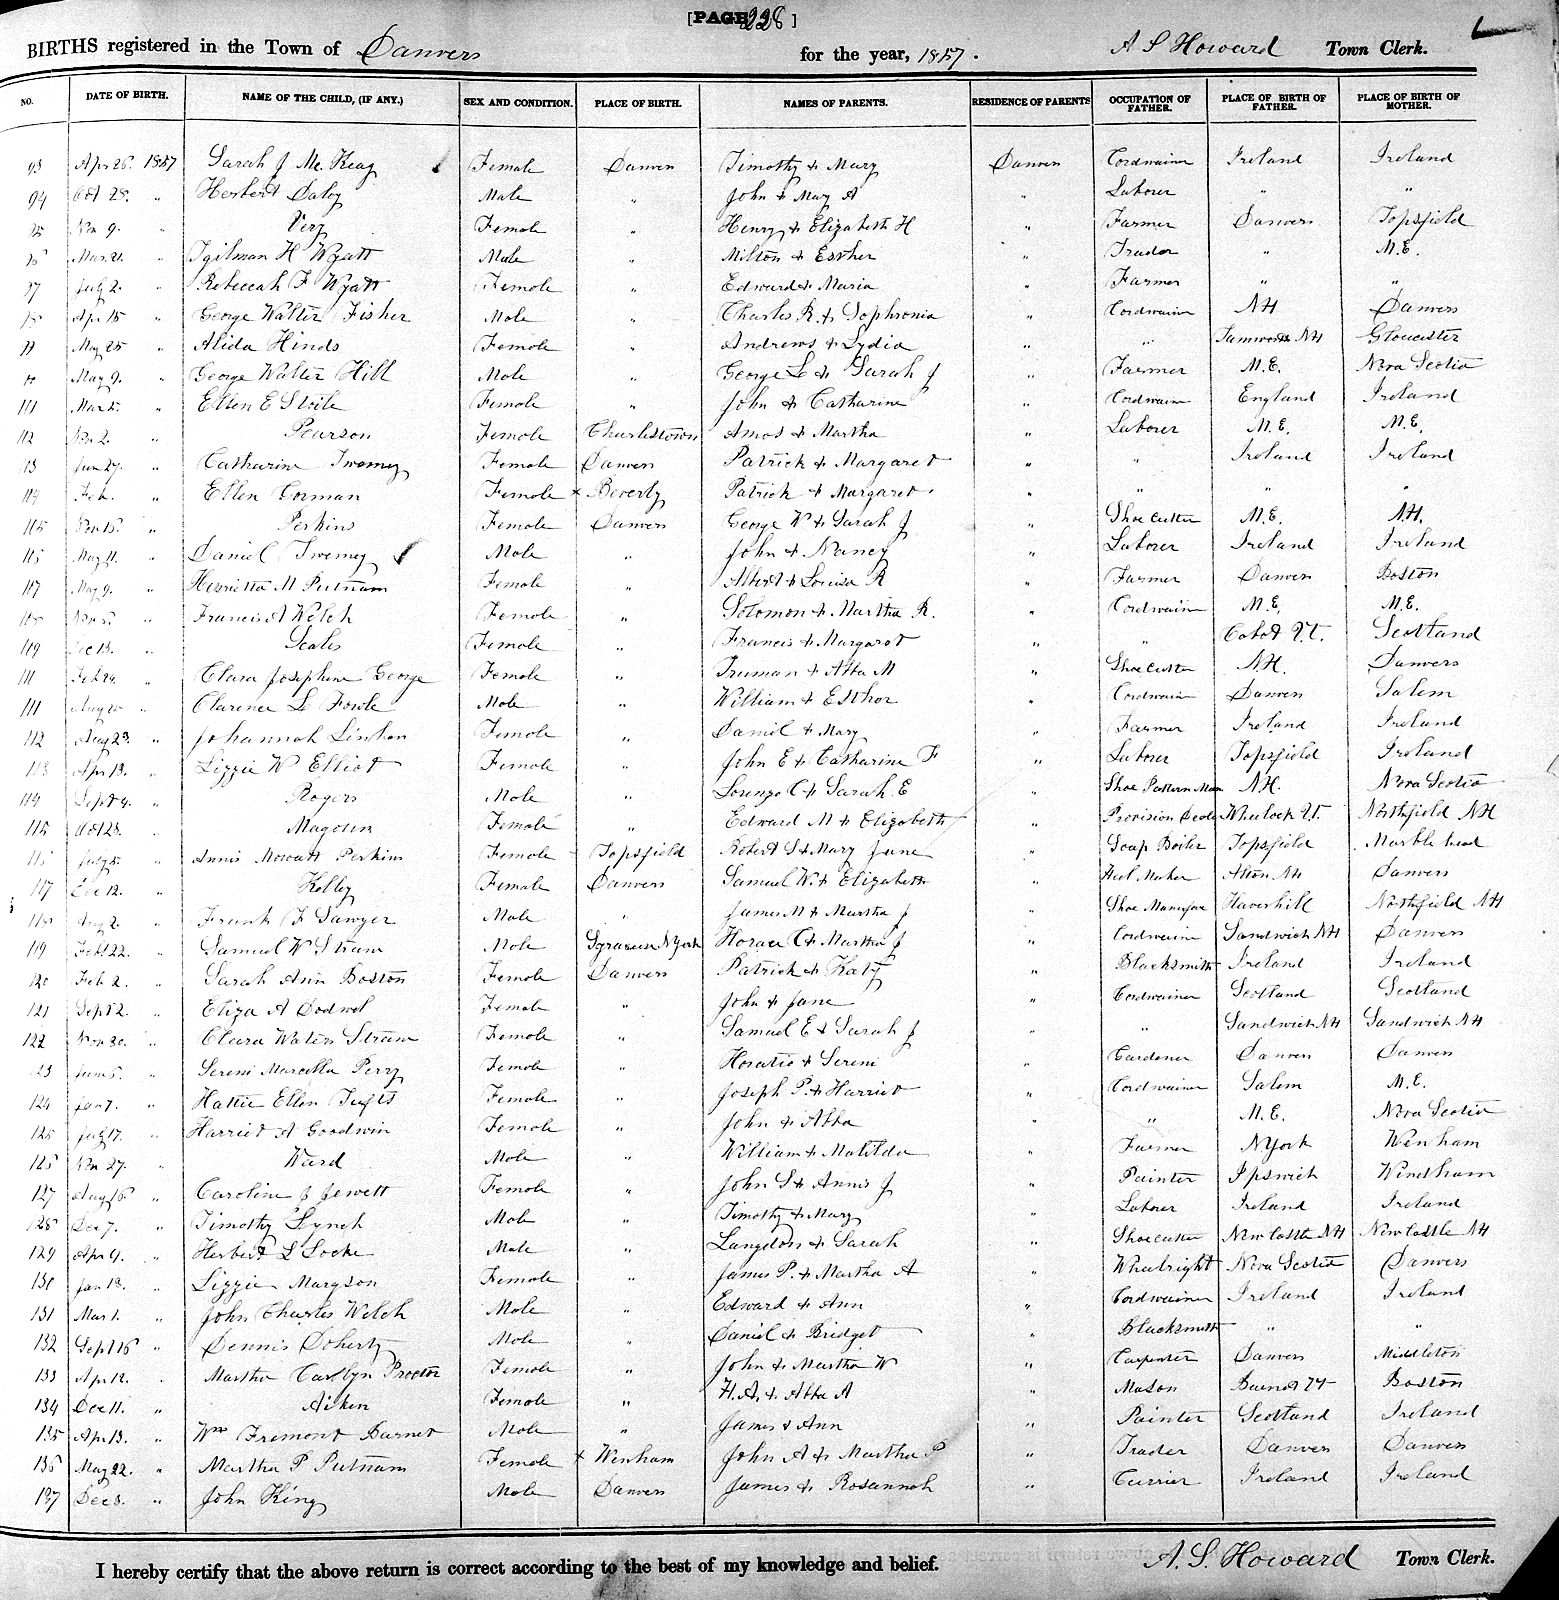 [PAGE 228]
BIRTHS registered in the Town of Danvers for the year, 1857. A S Howard Town Clerk.
NO. DATE OF BIRTH. NAME OF THE CHILD, (IF ANY.) SEX AND CONDITION. PLACE OF BIRTH. NAMES OF PARENTS. RESIDENCE OF PARENTS OCCUPATION OF FATHER. PLACE OF BIRTH OF FATHER. PLACE OF BIRTH OF MOTHER.
93 Apr 26. 1857 Sarah J Mc Keag Female Danvers Timothy & Mary Danvers Cordwainer Ireland Ireland
94 Oct 28. " Herbert Daley Male " John & Mary A " Laborer " "
Nov 9. " Very Female " Henry & Elizabeth H " Farmer Danvers Topsfield
Mar 21. " H Wyatt Male " Milton & Esther " Trader " M.E.
97 July 2. " Rebeccah F Wyatt Female " Edward & Maria " Farmer " "
Apr 15 " George Walter Fisher Male " Charles R. & Sophronia " Cordwainer NH Danvers
May 25 " Alida Hinds Female " Andrews & Lydia " " Tamworth NH Gloucester
May 9. " George Walter Hill Male " George L & Sarah J " Farmer M.E. Nova Scotia
111 Mar 5. " Ellen E Female " John & Catharine " Cordwainer England Ireland
112 Nov 2. " Pearson Female Charlestown Amos & Martha " Laborer M.E. M.E.
13 Jun 27. " Catharine Twomey Female Danvers Patrick & Margaret " " Ireland Ireland
114 Feb. " Ellen Gorman Female x Beverly Patrick & Margaret " " " "
115 Nov 15. " Perkins Female Danvers George W & Sarah J " Shoe Cutter M.E. N.H.
115 May 11. " Daniel Twomey Male " John & Nancy " Laborer Ireland Ireland
117 May 9. " Henrietta M Putnam Female " Albert & Louisa R " Farmer Danvers Boston
Nov 5. " Francis A Welch Female " Solomon & Martha R. " Cordwainer M.E. M.E.
119 Dec 13. " Scales Female " Francis & Margaret " " Cabot V.T. Scotland
111 Feb 24. " Clara Josephine George Female " Truman & Abba M " Shoe Cutter N.H. Danvers
111 " Clarence L Fowle Male " William & Esther " Cordwainer Danvers Salem
112 Aug 23. " Johannah Linhan Female " Daniel & Mary " Farmer Ireland Ireland
113 Apr 13. " Lizzie W Elliot Female " John E & Catharine F " Laborer Topsfield Ireland
114 Sept 9. " Rogers Male " Lorenzo C & Sarah E " Shoe Pattern Man N.H. Nova Scotia
115 Oct 28. " Magoun Female " Edward M & Elizabeth " Provision Deale Wheelock V.T. Northfield NH
115 July 5. " Annis Mowatt Perkins Female Topsfield Robert S & Mary Jane " Soap Boiler Topsfield Marblehead
117 Dec 12. " Kelley Female Danvers Samuel W. & Elizabeth " Heel Maker Alton NH Danvers
Aug 2. " Frank F Sawyer Male " James M & Martha J " Shoe Manufac Haverhill Northfield NH
119 Feb 22. " Samuel W Straw Male Syracuse N York Horace C & Martha J " Cordwainer Sandwich NH Danvers
120 Feb 2. " Sarah Ann Boston Female Danvers Patrick & Katy " Blacksmith Ireland Ireland
121 Sept 2. " Eliza A Dodwel Female " John & Jane " Cordwainer Scotland Scotland
122 Nov 30. " Clara Waters Straw Female " Samuel E & Sarah J " " Sandwich NH Sandwich NH
23 Jun 5. " Sereni Marcella Perry Female " Horatio & Sereni " Gardener Danvers Danvers
124 Jan 7. " Hattie Ellen Tufts Female " Joseph P. & Harriet " Cordwainer Salem M.E.
125 July 17. " Harriet A Goodwin Female " John & Abba " " M.E. Nova Scotia
125 Nov 27. " Ward Male " William & Matilda " Farmer N York Wenham
127 Aug 15 " Caroline J Jewett Female " John S & Annis J " Painter Ipswich Windham
125 Dec 7. " Timothy Lynch Male " Timothy & Mary " Laborer Ireland Ireland
129 Apr 9. " Herbert L Locke Male " Langdon & Sarah " Shoe cutter New Castle NH New Castle NH
130 Jan 13. " Lizzie Margson Female " James P. & Martha A " Wheelright Nova Scotia Danvers
131 Mar 1. " John Charles Welch Male " Edward & Ann " Cordwainer Ireland Ireland
132 Sept 15 " Dennis Doherty Male " Daniel & Bridget " Blacksmith " "
133 Apr 12. " Martha Carolyn Proctor Female " John & Martha W " Carpenter Danvers Middleton
134 Dec 11. " Aiken Female " H. A. & Abba A " Mason Barnet VT Boston
135 Apr 13. " Wm Fremont Barnet Male " James & Ann " Painter Scotland Ireland
135 May 22. " Martha P Putnam Female x Wenham John A & Martha P " Trader Danvers Danvers
137 Dec 3. " John King Male Danvers James & Rosannah " Currier Ireland Ireland
I hereby certify that the above return is correct according to the best of my knowledge and belief. A. S. Howard Town Clerk.